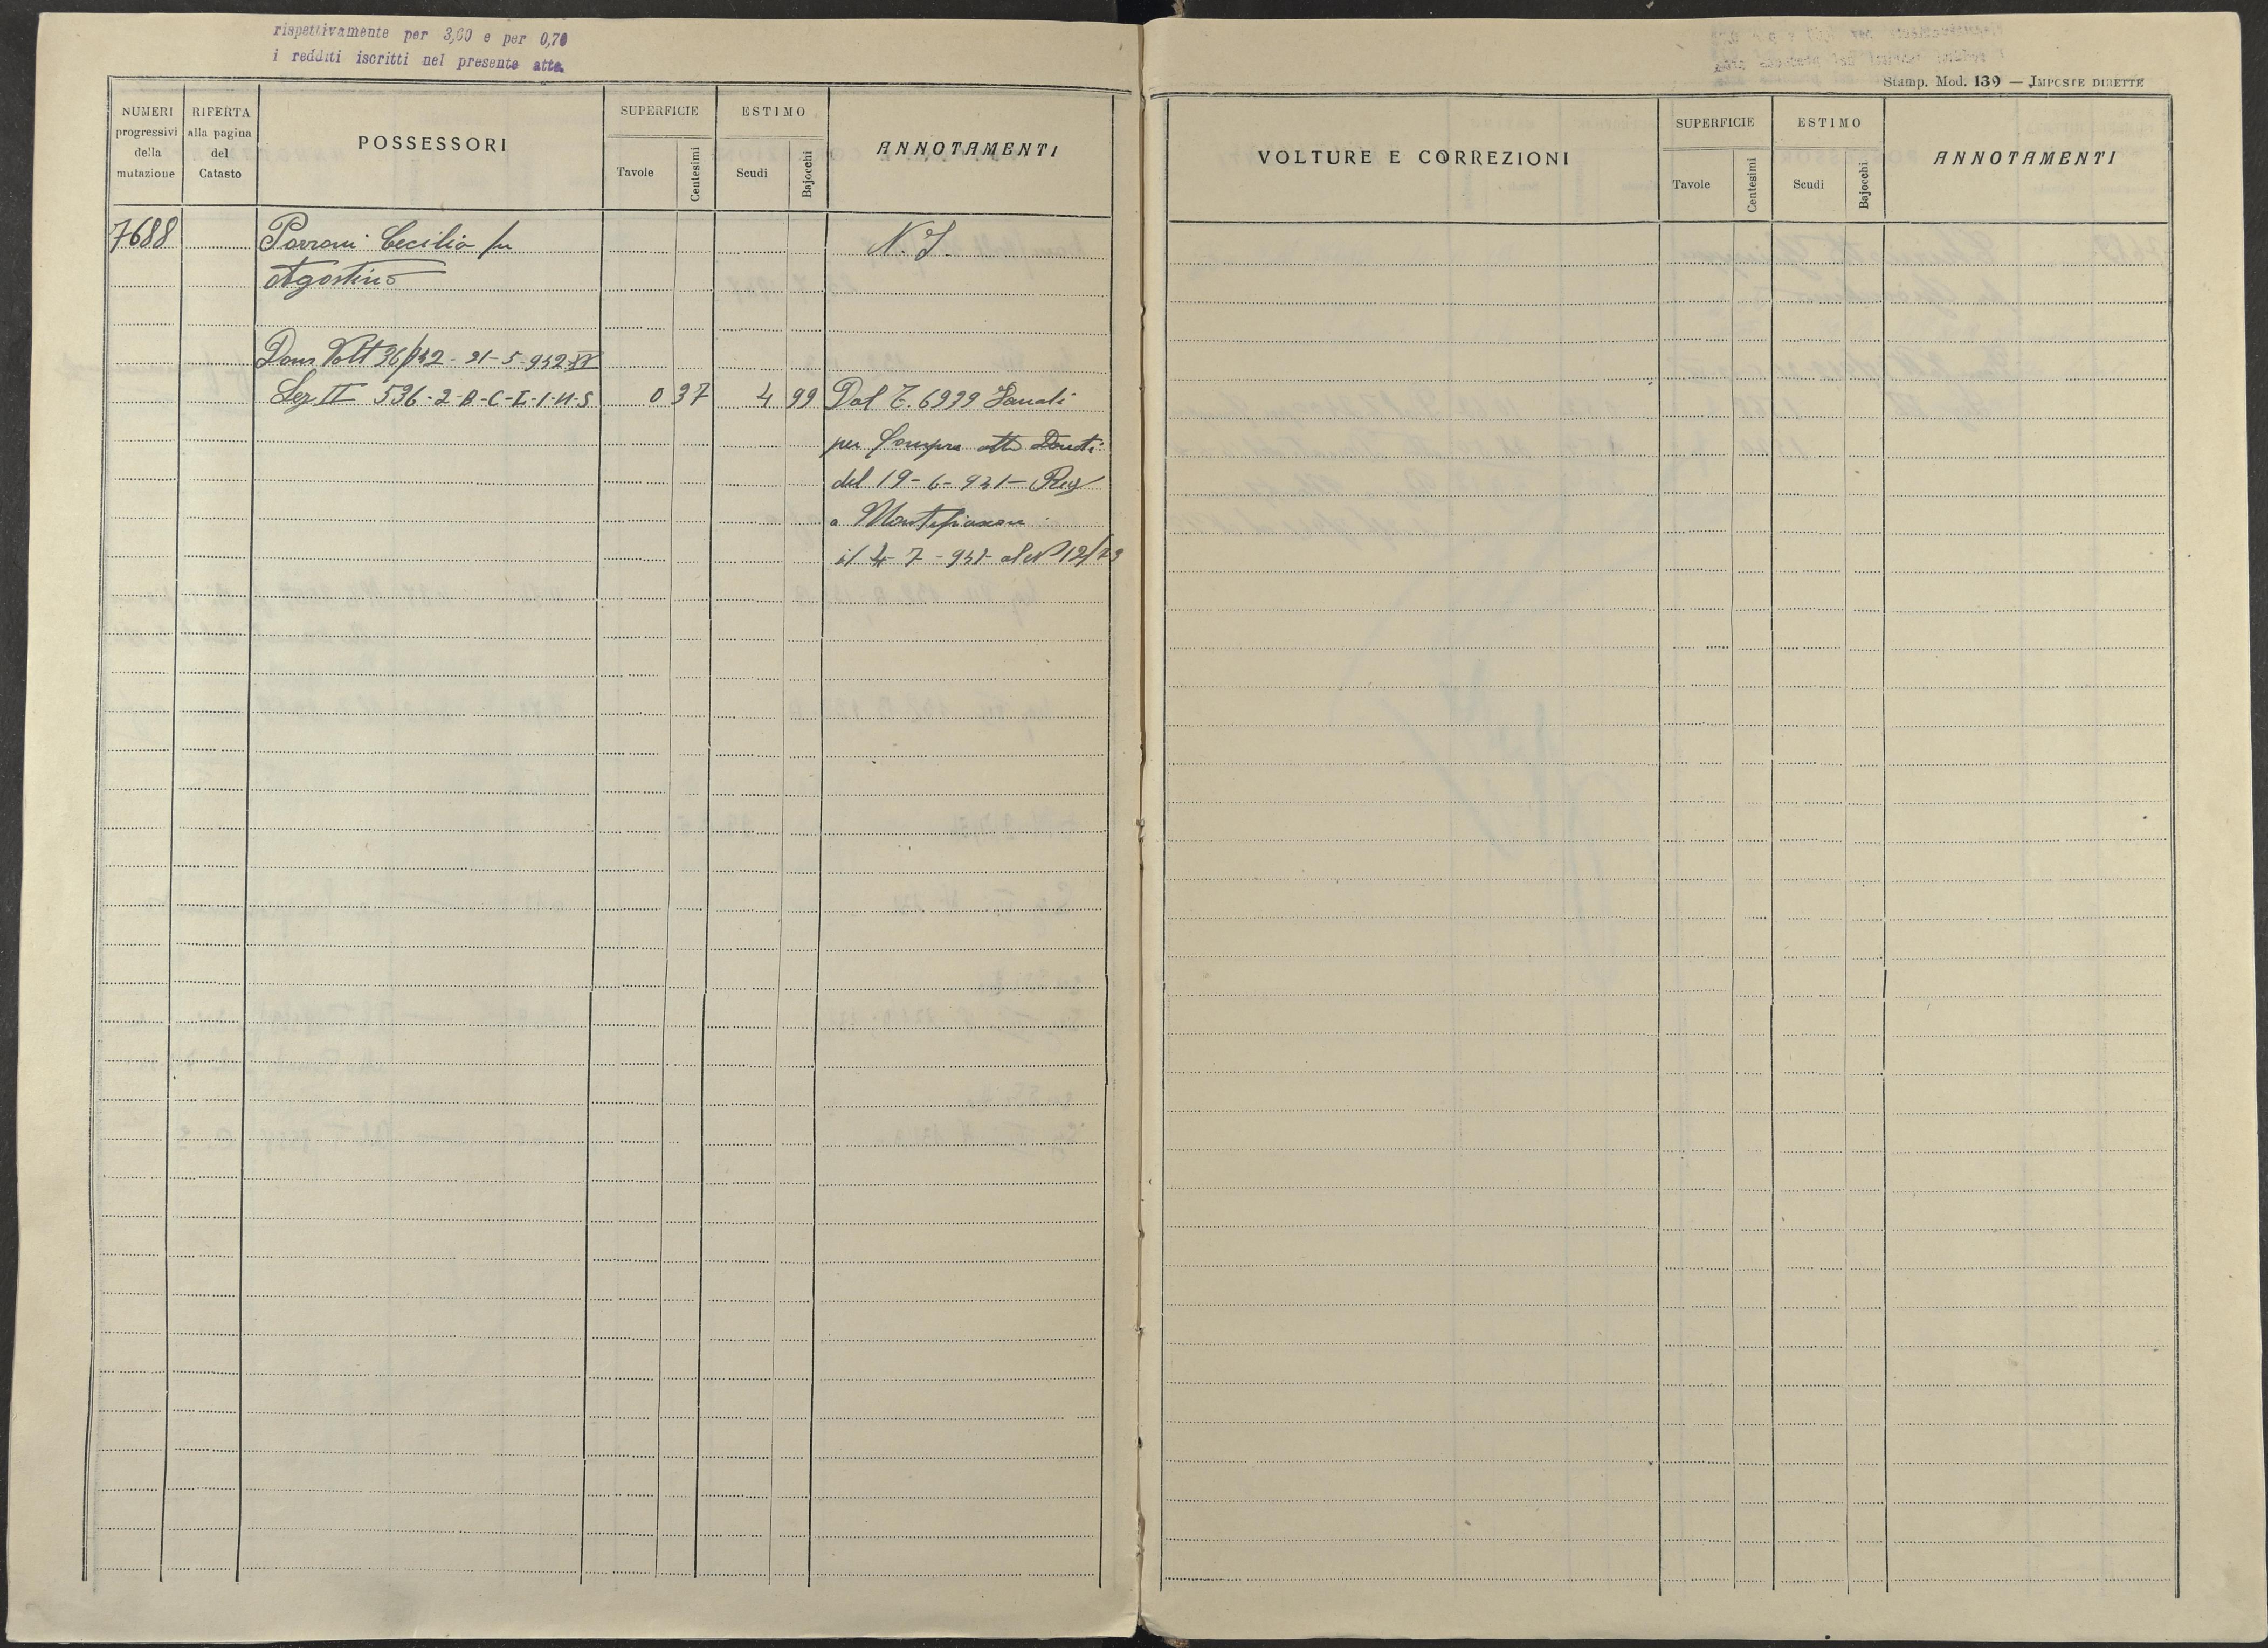 rispettivamente per 3,60 e per 0,70
i redditi iscritti nel presente atto.
NUMERI progressivi della mutazione
RIFERTA alla pagina del Catasto
POSSESSORI
SUPERFICIE
Tavole
Centesimi
ESTIMO
Scudi
Bajocchi
ANNOTAMENTI
7688 Parroni Cecilia fu N.I.
Agostino
Dom Volt 36/942 - 21-5-942 XX
Sez. II 536-2- 0 37 4 99 Dal T. 6939
per Compra atto Donati
del 19-6-941- Reg
a Montefiascone
il 4-7-941- al N° 12/73
Stamp. Mod. 139 — IMPOSTE DIRETTE
VOLTURE E CORREZIONI
SUPERFICIE
Tavole
Centesimi
ESTIMO
Scudi
Bajocchi
ANNOTAMENTI